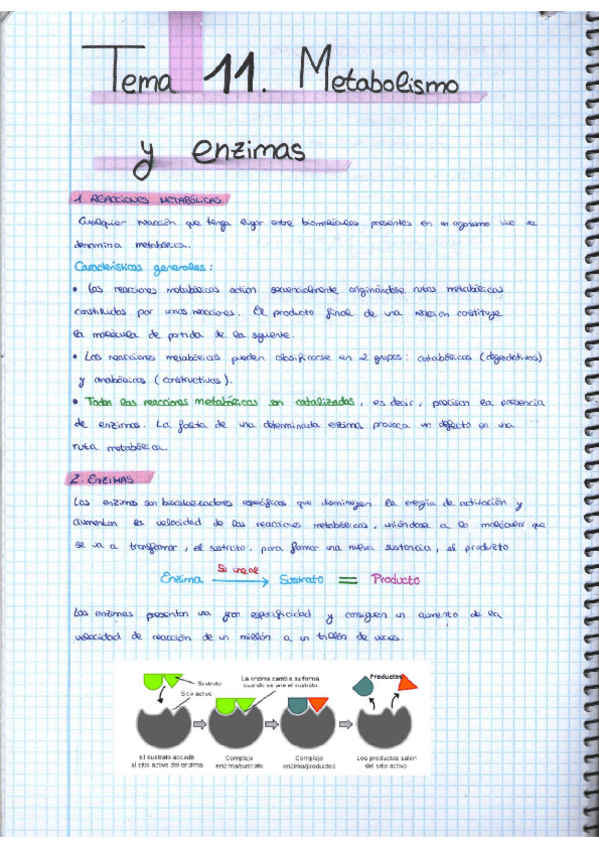 Tema 11. Metabolismo
y enzimas
1. REACCIONES METABÓLICAS
Cualquier reacción que tenga lugar entre biomoléculas presentes en un organismo vivo se
denomina metabólica.
Características generales:
• Las reacciones metabólicas actúan secuencialmente originándose rutas metabólicas
constituidas por varias reacciones. El producto final de una reacción constituye
la molécula de partida de la siguiente.
• Las reacciones metabólicas pueden clasificarse en 2 grupos: catabólicas (degradativas)
y anabólicas (constructivas).
• Todas las reacciones metabólicas son catalizadas, es decir, precisan la presencia
de enzimas. La falta de una determinada enzima provoca un defecto en una
ruta metabólica.
2. ENZIMAS
Las enzimas son biocatalizadores específicos que disminuyen la energía de activación y
aumentan la velocidad de las reacciones metabólicas, uniéndose a la molécula que
se va a transformar, el sustrato, para formar una nueva sustancia, el producto
Se une al
Enzima → Sustrato = Producto
Las enzimas presentan una gran especificidad y consiguen un aumento de la
velocidad de reacción de un millón a un trillón de veces.
Sustrato
Sitio activo
La enzima cambia su forma
cuando se une el sustrato
Productos
El sustrato accede
al sitio activo del enzima
Complejo
enzima/sustrato
Complejo
enzima/productos
Los productos salen
del sitio activo